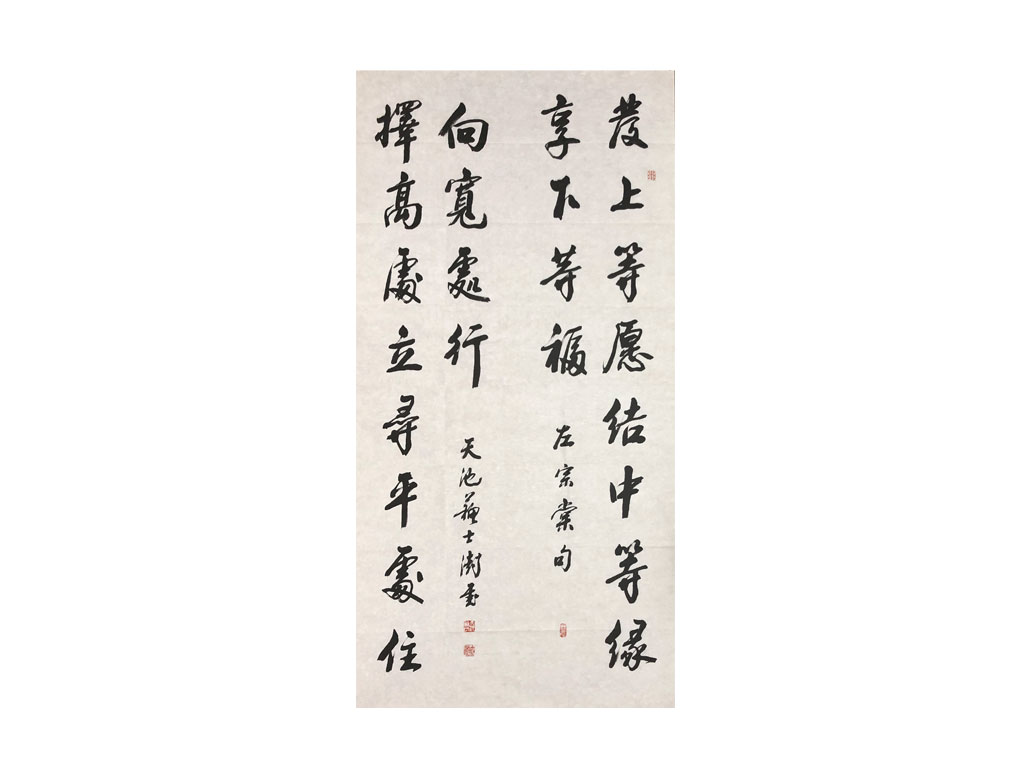 發上等愿結中等緣
享下等福
左宗棠句
擇高處立尋平處住
向寬處行
天池蘇士澍書